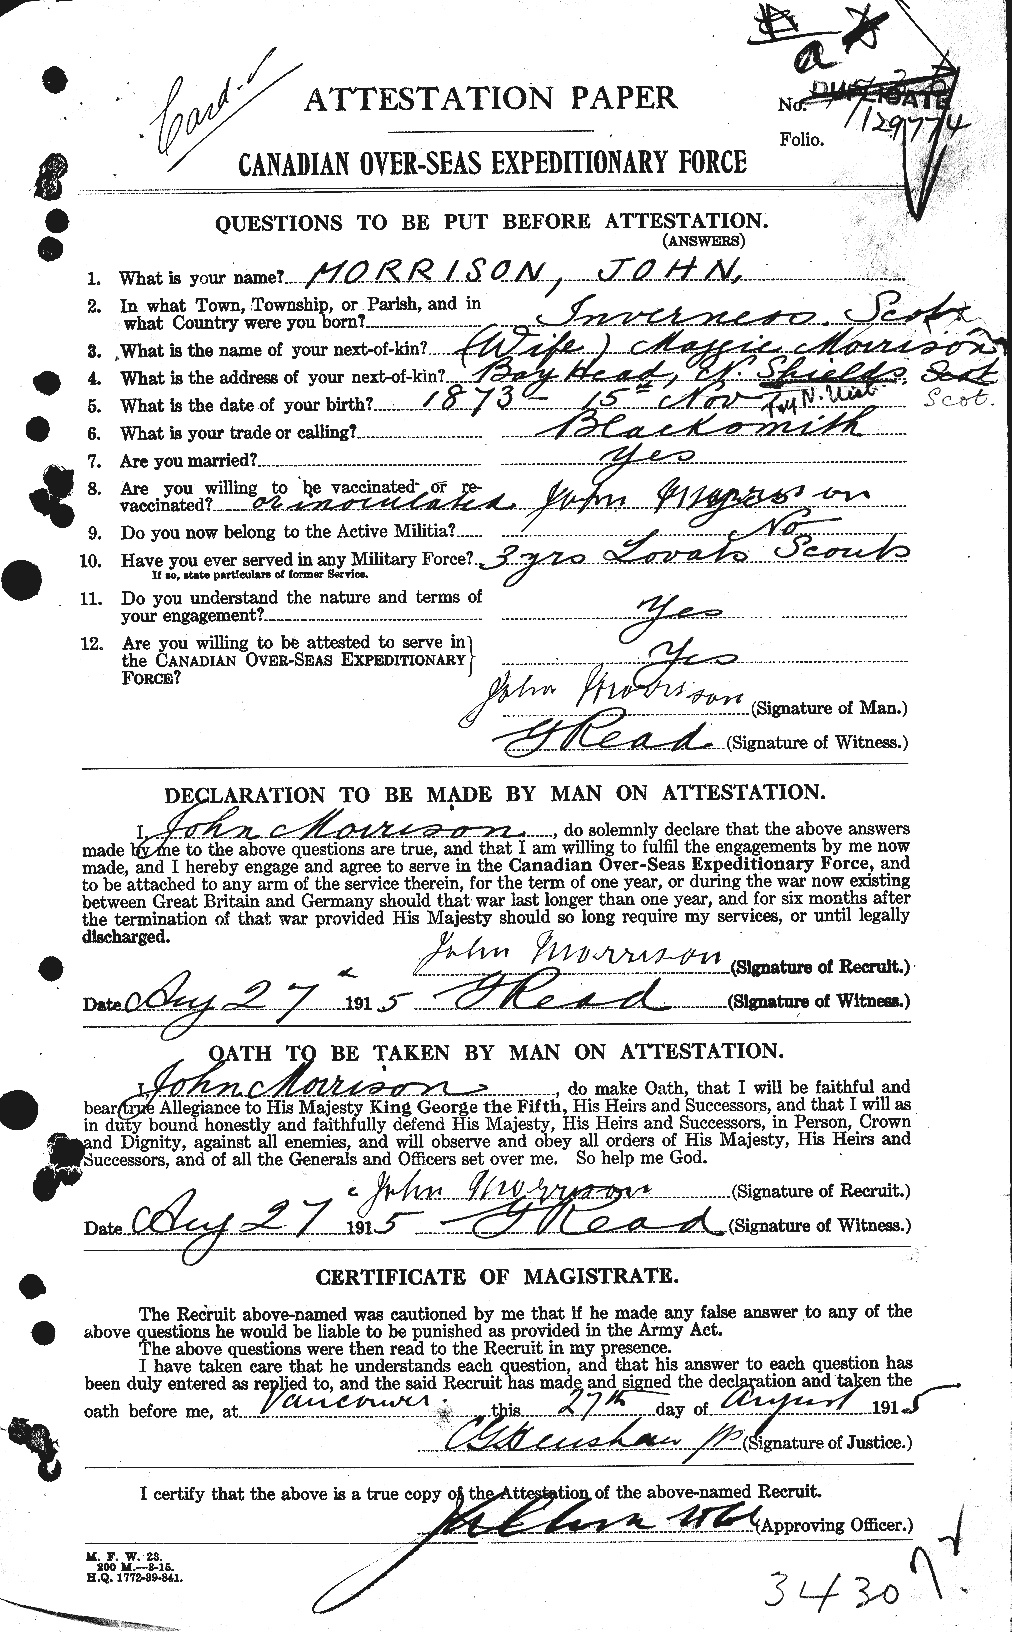 Card
a
ATTESTATION PAPER
No. DUPLICATE
129774
Folio.
CANADIAN OVER-SEAS EXPEDITIONARY FORCE
QUESTIONS TO BE PUT BEFORE ATTESTATION.
(ANSWERS)
1. What is your name? MORRISON, JOHN.
2. In what Town, Township, or Parish, and in
what Country were you born? Inverness. Scot
3. What is the name of your next-of-kin? (Wife) Maggie Morrison
4. What is the address of your next-of-kin? Bay Head, N. Shields, Scot
5. What is the date of your birth? 1873 - 15th Nov N. Uist Scot.
6. What is your trade or calling? Blacksmith
7. Are you married? Yes
8. Are you willing to be vaccinated or re-
vaccinated? or inoculated. John Morrison
9. Do you now belong to the Active Militia? No
10. Have you ever served in any Military Force? 3 yrs Lovats Scouts
If so, state particulars of former Service.
11. Do you understand the nature and terms of
your engagement? Yes
12. Are you willing to be attested to serve in
the CANADIAN OVER-SEAS EXPEDITIONARY Yes
FORCE?
John Morrison (Signature of Man.)
G Read (Signature of Witness.)
DECLARATION TO BE MADE BY MAN ON ATTESTATION.
I, John Morrison, do solemnly declare that the above answers
made by me to the above questions are true, and that I am willing to fulfil the engagements by me now
made, and I hereby engage and agree to serve in the Canadian Over-Seas Expeditionary Force, and
to be attached to any arm of the service therein, for the term of one year, or during the war now existing
between Great Britain and Germany should that war last longer than one year, and for six months after
the termination of that war provided His Majesty should so long require my services, or until legally
discharged.
John Morrison (Signature of Recruit.)
Date Aug 27 1915 G Read (Signature of Witness.)
OATH TO BE TAKEN BY MAN ON ATTESTATION.
I, John Morrison, do make Oath, that I will be faithful and
bear true Allegiance to His Majesty King George the Fifth, His Heirs and Successors, and that I will as
in duty bound honestly and faithfully defend His Majesty, His Heirs and Successors, in Person, Crown
and Dignity, against all enemies, and will observe and obey all orders of His Majesty, His Heirs and
Successors, and of all the Generals and Officers set over me. So help me God.
John Morrison (Signature of Recruit.)
Date Aug 27 1915 G Read (Signature of Witness.)
CERTIFICATE OF MAGISTRATE.
The Recruit above-named was cautioned by me that if he made any false answer to any of the
above questions he would be liable to be punished as provided in the Army Act.
The above questions were then read to the Recruit in my presence.
I have taken care that he understands each question, and that his answer to each question has
been duly entered as replied to, and the said Recruit has made and signed the declaration and taken the
oath before me, at Vancouver this 27th day of August 1915
CG Henshaw JP (Signature of Justice.)
I certify that the above is a true copy of the Attestation of the above-named Recruit.
(Approving Officer.)
M. F. W. 23.
200 M.—8-15.
H.Q. 1772-39-841.
34307